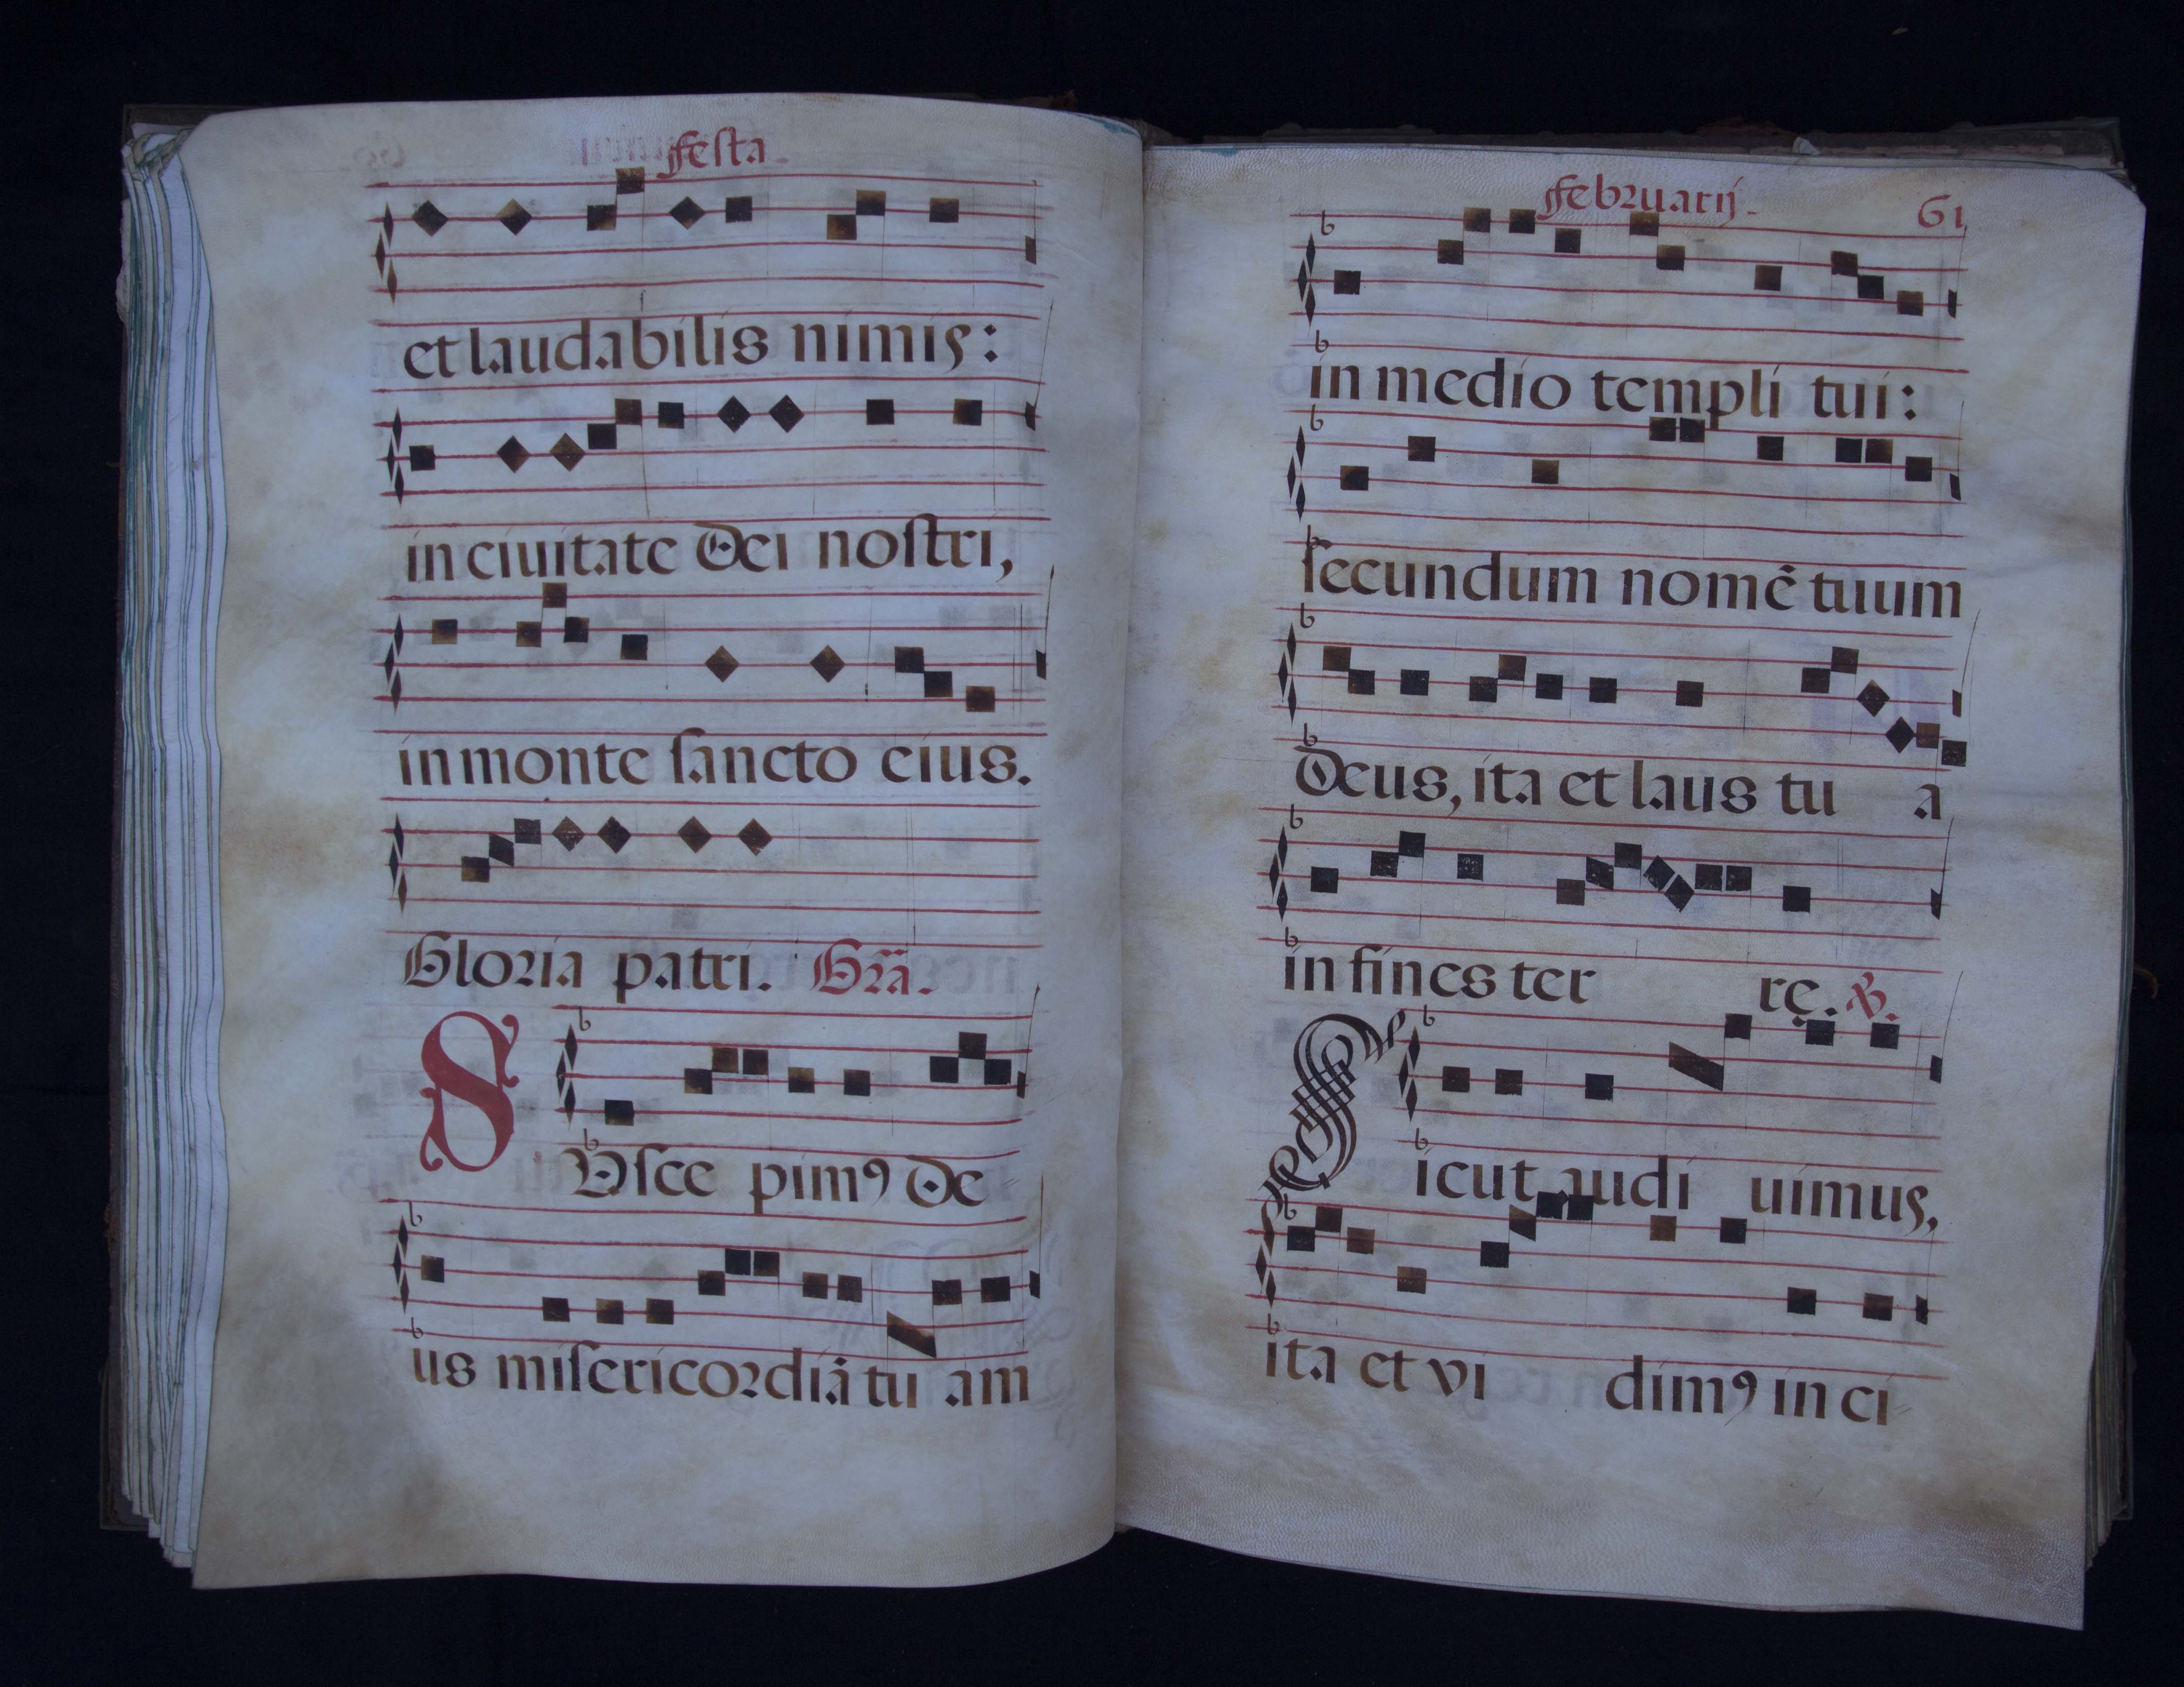 Festa.
et laudabilis nimis:
in ciuitate Dei noſtri,
in monte ſancto eius.
Gloria patri. Gra᷃.
S Vſce pimꝰ De
us miſericordiā tu am
Februarij. 61
in medio templi tui:
ſecundum nomē tuum
Deus, ita et laus tu a
in fines ter rę. ℟.
S icut audi uimus,
ita et vi dimꝰ in ci